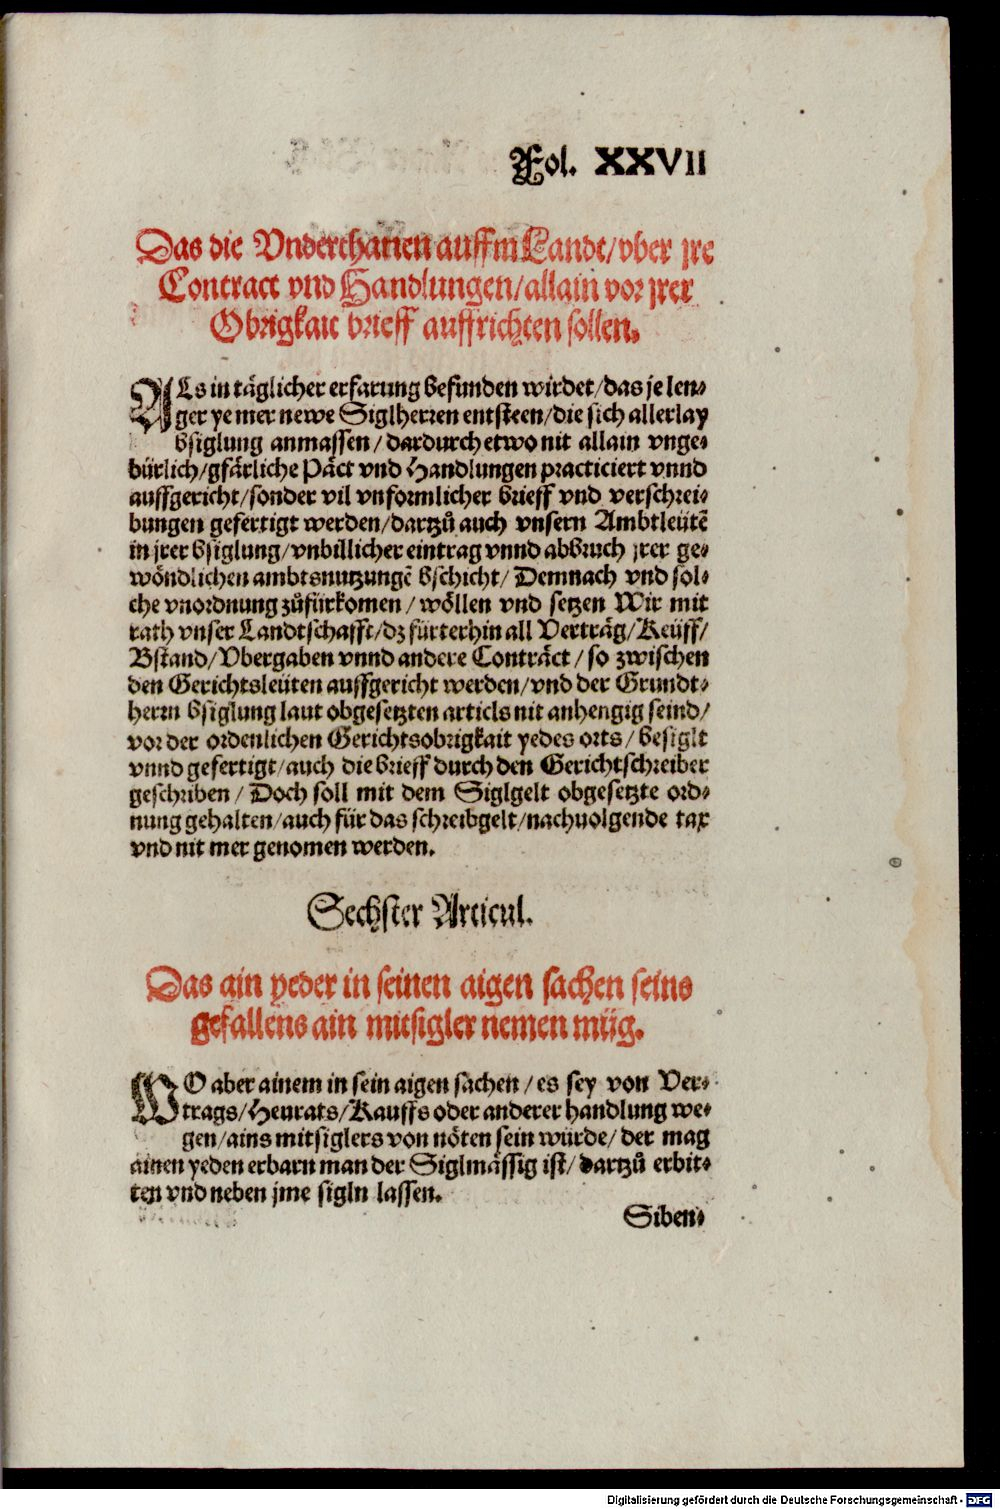 Fol. XXVII
Das die Vnderthanen auffm Landt/vber jre
Contract vnd Handlungen/allain vor jrer
Obrigkait brieff auffrichten sollen.
ALs in täglicher erfarung befunden wirdet/das je len⸗
ger ye mer newe Siglherren entsteen/die sich allerlay
bsiglung anmassen/dardurch etwo nit allain vnge⸗
bürlich/gfärliche Päct vnd Handlungen practiciert vnnd
auffgericht/sonder vil vnformlicher brieff vnd verschrei⸗
bungen gefertigt werden/dartzů auch vnsern Ambtleütē
in jrer bsiglung/vnbillicher eintrag vnnd abbruch jrer ge⸗
wöndlichen ambtsnutzungē bschicht/Demnach vnd sol⸗
che vnordnung zůfürkomen/wöllen vnd setzen Wir mit
rath vnser Landtschafft/dz fürterhin all Verträg/Keüff/
Bstand/Vbergaben vnnd andere Conträct/so zwischen
den Gerichtsleüten auffgericht werden/vnd der Grundt⸗
herrn bsiglung laut obgesetzten articls nit anhengig seind/
vor der ordenlichen Gerichtsobrigkait yedes orts/besiglt
vnnd gefertigt/auch die brieff durch den Gerichtschreiber
geschriben/Doch soll mit dem Siglgelt obgesetzte ord⸗
nung gehalten/auch für das schreibgelt/nachuolgende tax
vnd nit mer genomen werden.
Sechster Articul.
Das ain yeder in seinen aigen sachen seins
gefallens ain mitsigler nemen müg.
WO aber ainem in sein aigen sachen/es sey von Ver⸗
trags/Heurats/Kauffs oder anderer handlung we⸗
gen/ains mitsiglers von nöten sein würde/der mag
ainen yeden erbarn man der Siglmässig ist/dartzů erbit⸗
ten vnd neben jme sigln lassen.
Siben⸗
Digitalisierung gefördert durch die Deutsche Forschungsgemeinschaft - DFG